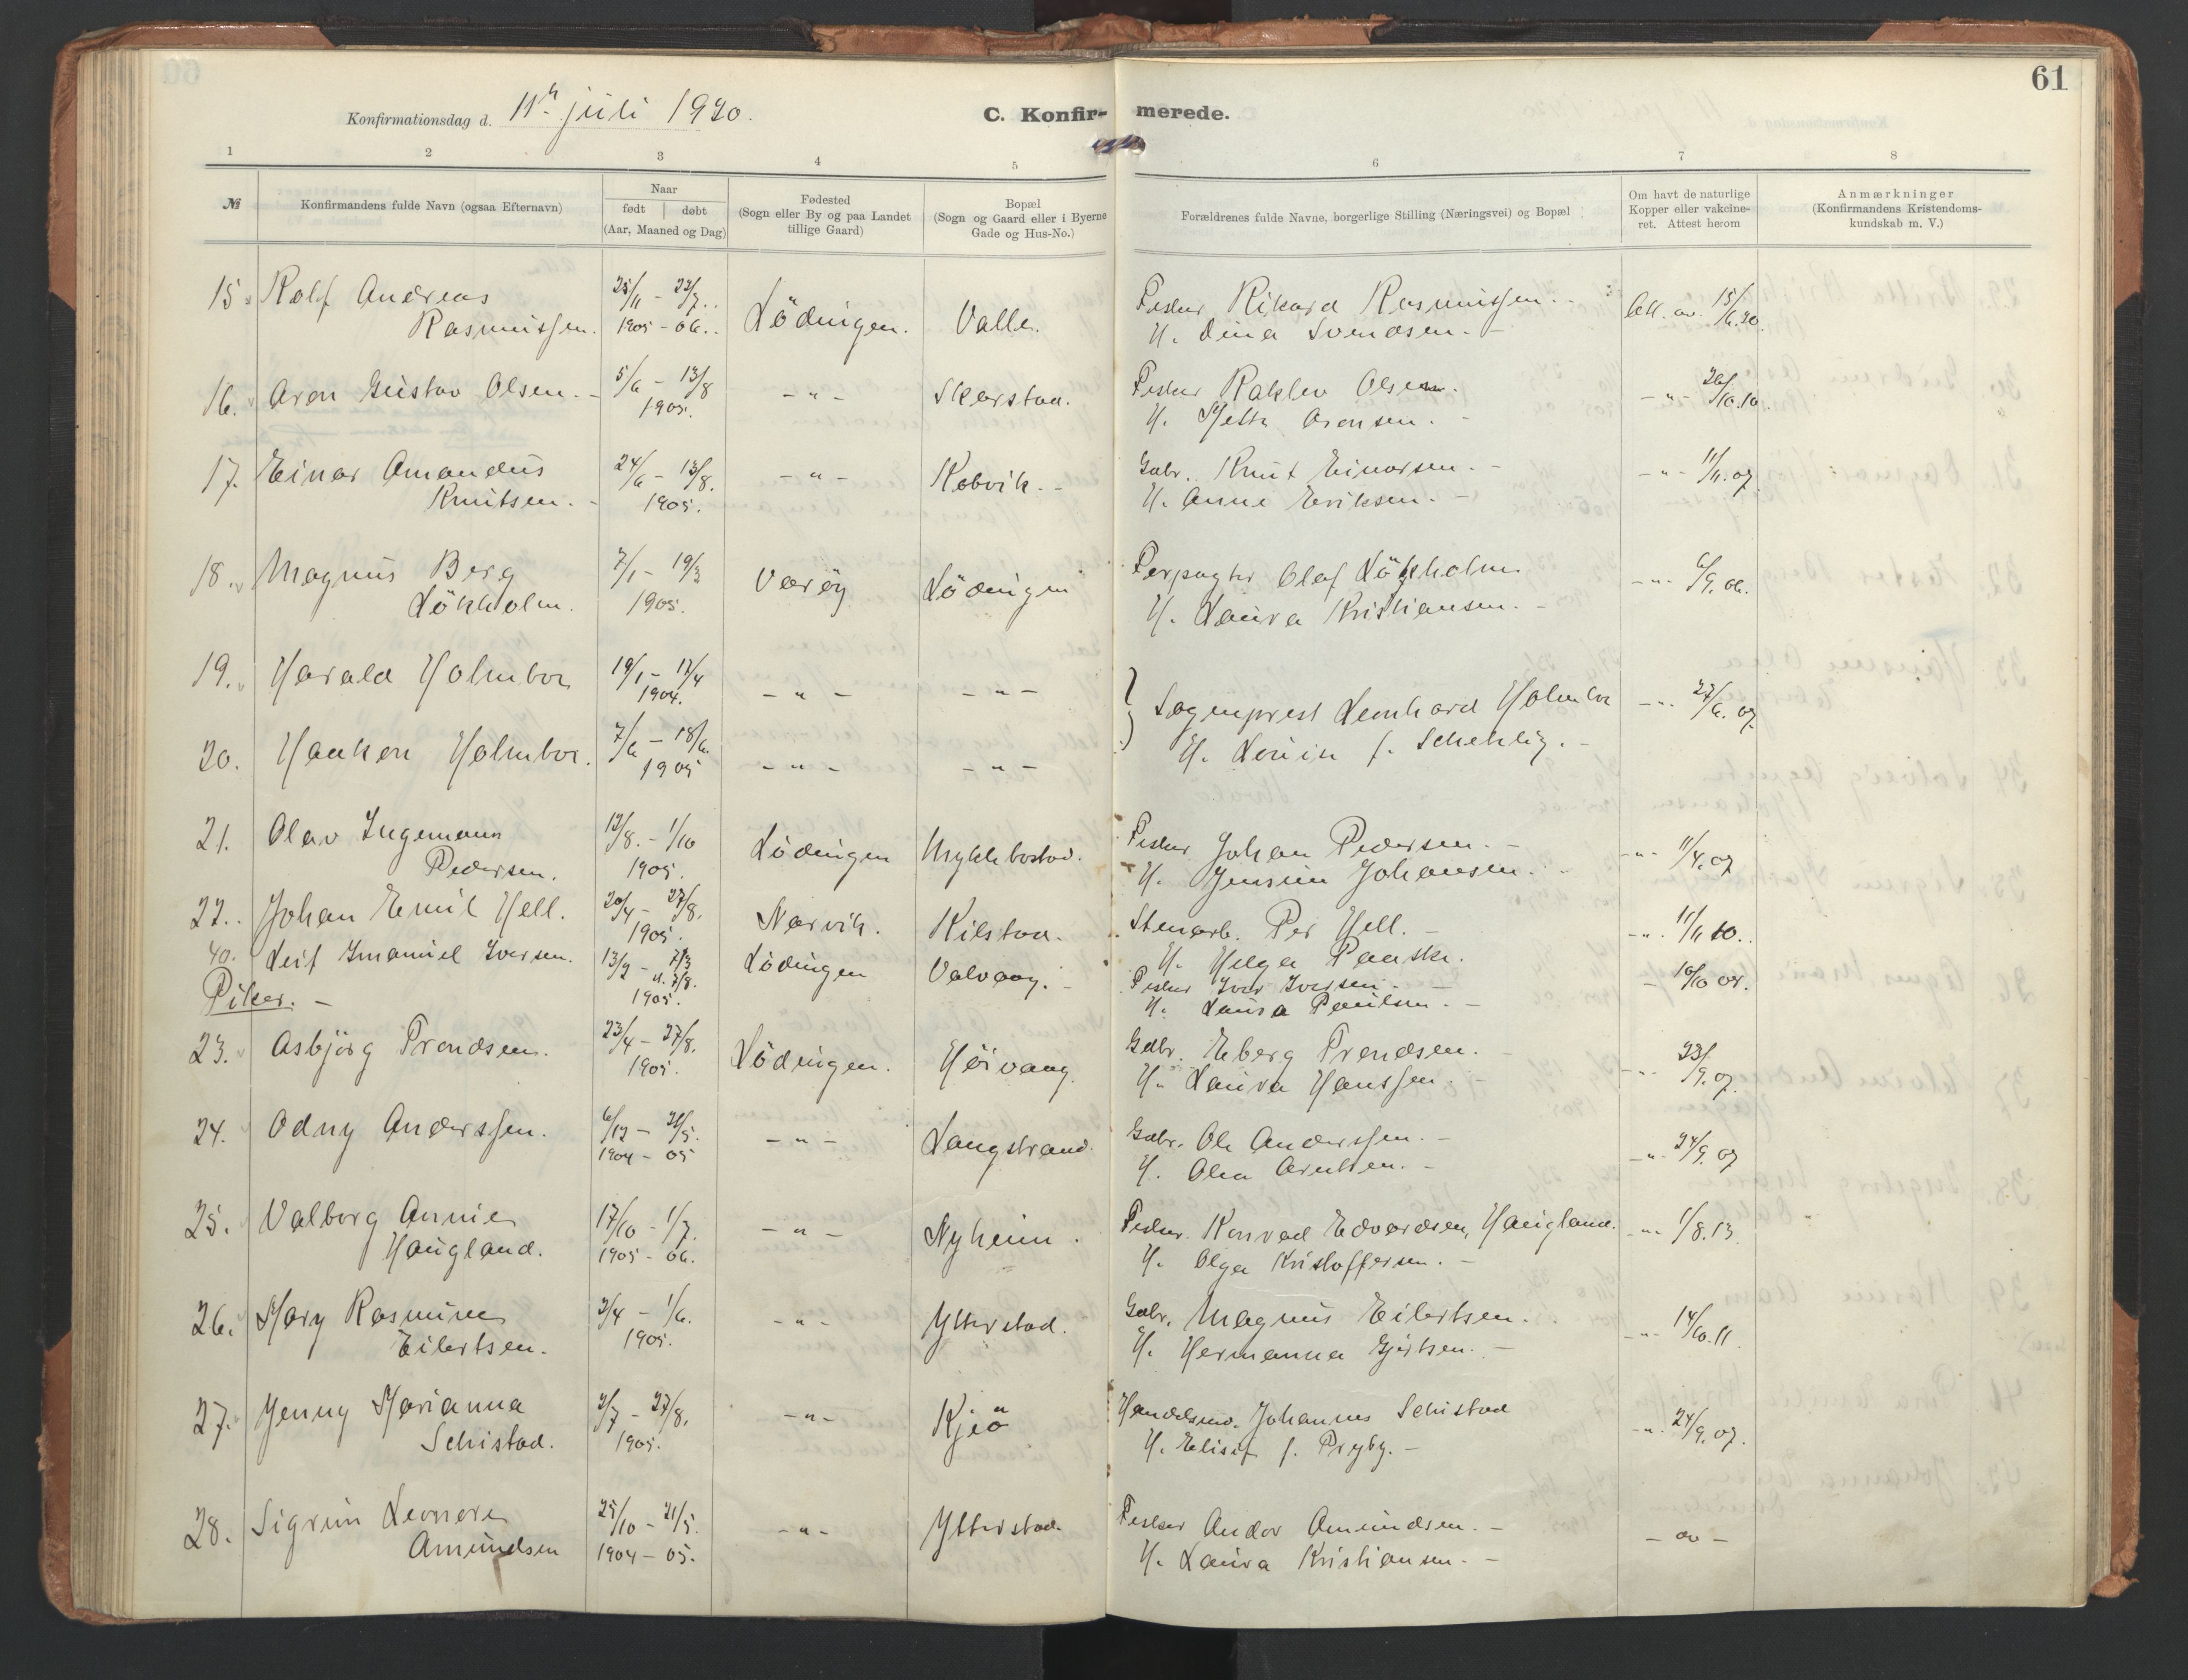 61
Konfirmationsdag d. 11te juli 1920.
C. Konfir- merede.
1 2 3 4 5 6 7 8
№
Konfirmandens fulde Navn (ogsaa Efternavn)
Naar
født | døbt
(Aar, Maaned og Dag)
Fødested
(Sogn eller By og paa Landet
tillige Gaard)
Bopæl
(Sogn og Gaard eller i Byerne
Gade og Hus-No.)
Forældrenes fulde Navne, borgerlige Stilling (Næringsvei) og Bopæl
Om havt de naturlige
Kopper eller vakcine-
ret. Attest herom
Anmærkninger
(Konfirmandens Kristendoms-
kundskab m. V.)
15. Rolf Andreas 25/11 - 22/7. Fisker Rikard Rasmussen. - Att. av 15/6.20.
Rasmussen. 1905 - 06. Lödingen. Valle. H. Dina Svendsen. -
16. Aron Gustav Olsen. - 5/6 - 13/8 - " - Skarstad. Fisker Raklev Olsen. - " - 26/10.10.
1905. H. Mette Aronsen. -
17. Einar Amandus 24/6 - 13/8. - " - Kobvik. - Gbr. Knut Einarsen. - - " - 11/11.07.
Knutsen. - 1905. H. Anne Eriksen. -
18. Magnus Berg 7/1 - 19/3 Væröy Lödingen Forpagter Olaf Lökholm - " - 6/9.06.
Lökholm. 1905. H. Laura Kristiansen. -
19. Harald Holmboe 19/1 - 17/4 - " - - " -
1904. } Sogneprest Leonhard Holmboe - " - 27/6.07.
20. Haakon Holmboe. 7/6 - 18/6. - " - - " - H. Louise f. Schehlig. -
1905
21. Olav Ingemann 13/8. - 1/10 Lödingen Myklebostad. Fisker Johan Pedersen. - - " - 11/4.07
Pedersen. 1905. H. Jensine Johansen. -
22. Johan Emil Hell. 20/4 - 27/8. Narvik. Kilstad. Stenarb. Per Hell. - - " - 11/11 10.
1905. H. Helga Paaske.
40. Leif Imanuel Iversen. 13/2 - 7/3 Lödingen Valvaag. - Fisker Iver Iversen. - - 10/10 08.
1905. H. Laura Paulsen. -
Piker. -
23. Asbjörg Trondsen. 23/4 - 27/8. Lödingen. Höivaag. Gbr. Eberg Trondsen. - - " - 23/9.07.
1905. H. Laura Hanssen. -
24. Odny Anderssen. 6/12 - 21/5. - " - Langstrand. Gbr. Ole Anderssen. - - " - 24/9.07
1904 - 05 H. Olea Arntsen. -
25. Valborg Annie 17/10 - 1/7. - " - Nyheim. Fisker. Konrad Edvardsen, Haugland. - " - 1/8.13.
Haugland. 1905 - 06. H. Olga Kristoffersen. -
26. Mary Rasmine 2/4 - 1/6. - " - Ytterstad. Gbr. Magnus Eilertsen. - " - 14/10.11.
Eilertsen. 1905. H. Hermanna Gjertsen. -
27. Jenny Marianna 2/7 - 27/8. - " - Kjeö Handelsmd. Johannes Schistad - " - 24/9.07.
Schistad. 1905. H. Elisif f. Pryby. -
28. Sigrun Leonore 25/10 - 21/5. - " - Ytterstad. Fisker Andor Amundsen. - - av -
Amundsen 1904 - 05. H. Laura Kristiansen. -